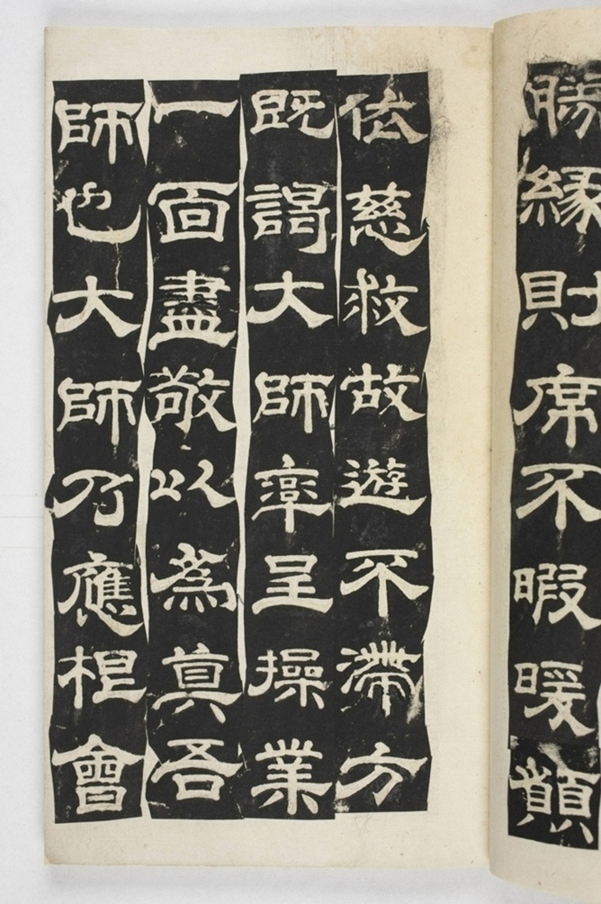 勝緣財席不暇暖願
依慈救故遊不滯方
既謁大師率呈操業
一面盡敬以為真吾
師也大師乃應根會